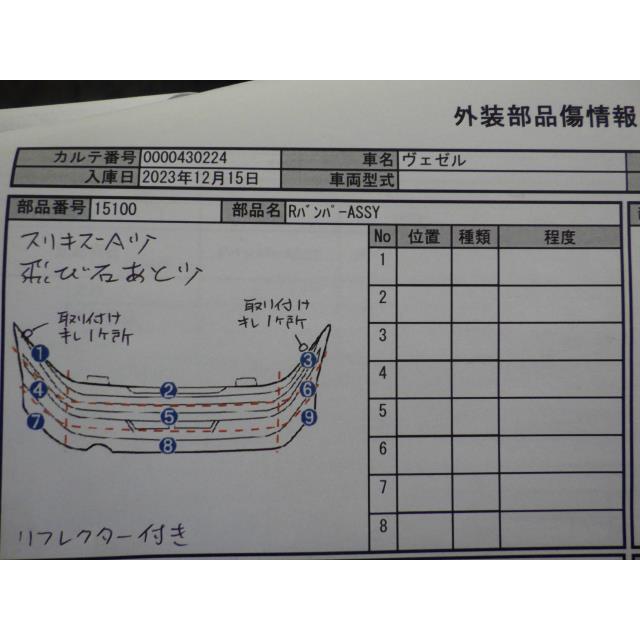 外装部品傷情報
カルテ番号 0000430224 車名 ヴェゼル
入庫日 2023年12月15日 車両型式
部品番号 15100 部品名 Rバンパ-ASSY
No 位置 種類 程度
1
2
3
4
5
6
7
8
スリキズ-A
飛び石あと
取り付け
キレ1ケ所
取り付け
キレ1ケ所
1 2 3
4 5 6
7 8 9
リフレクター付き